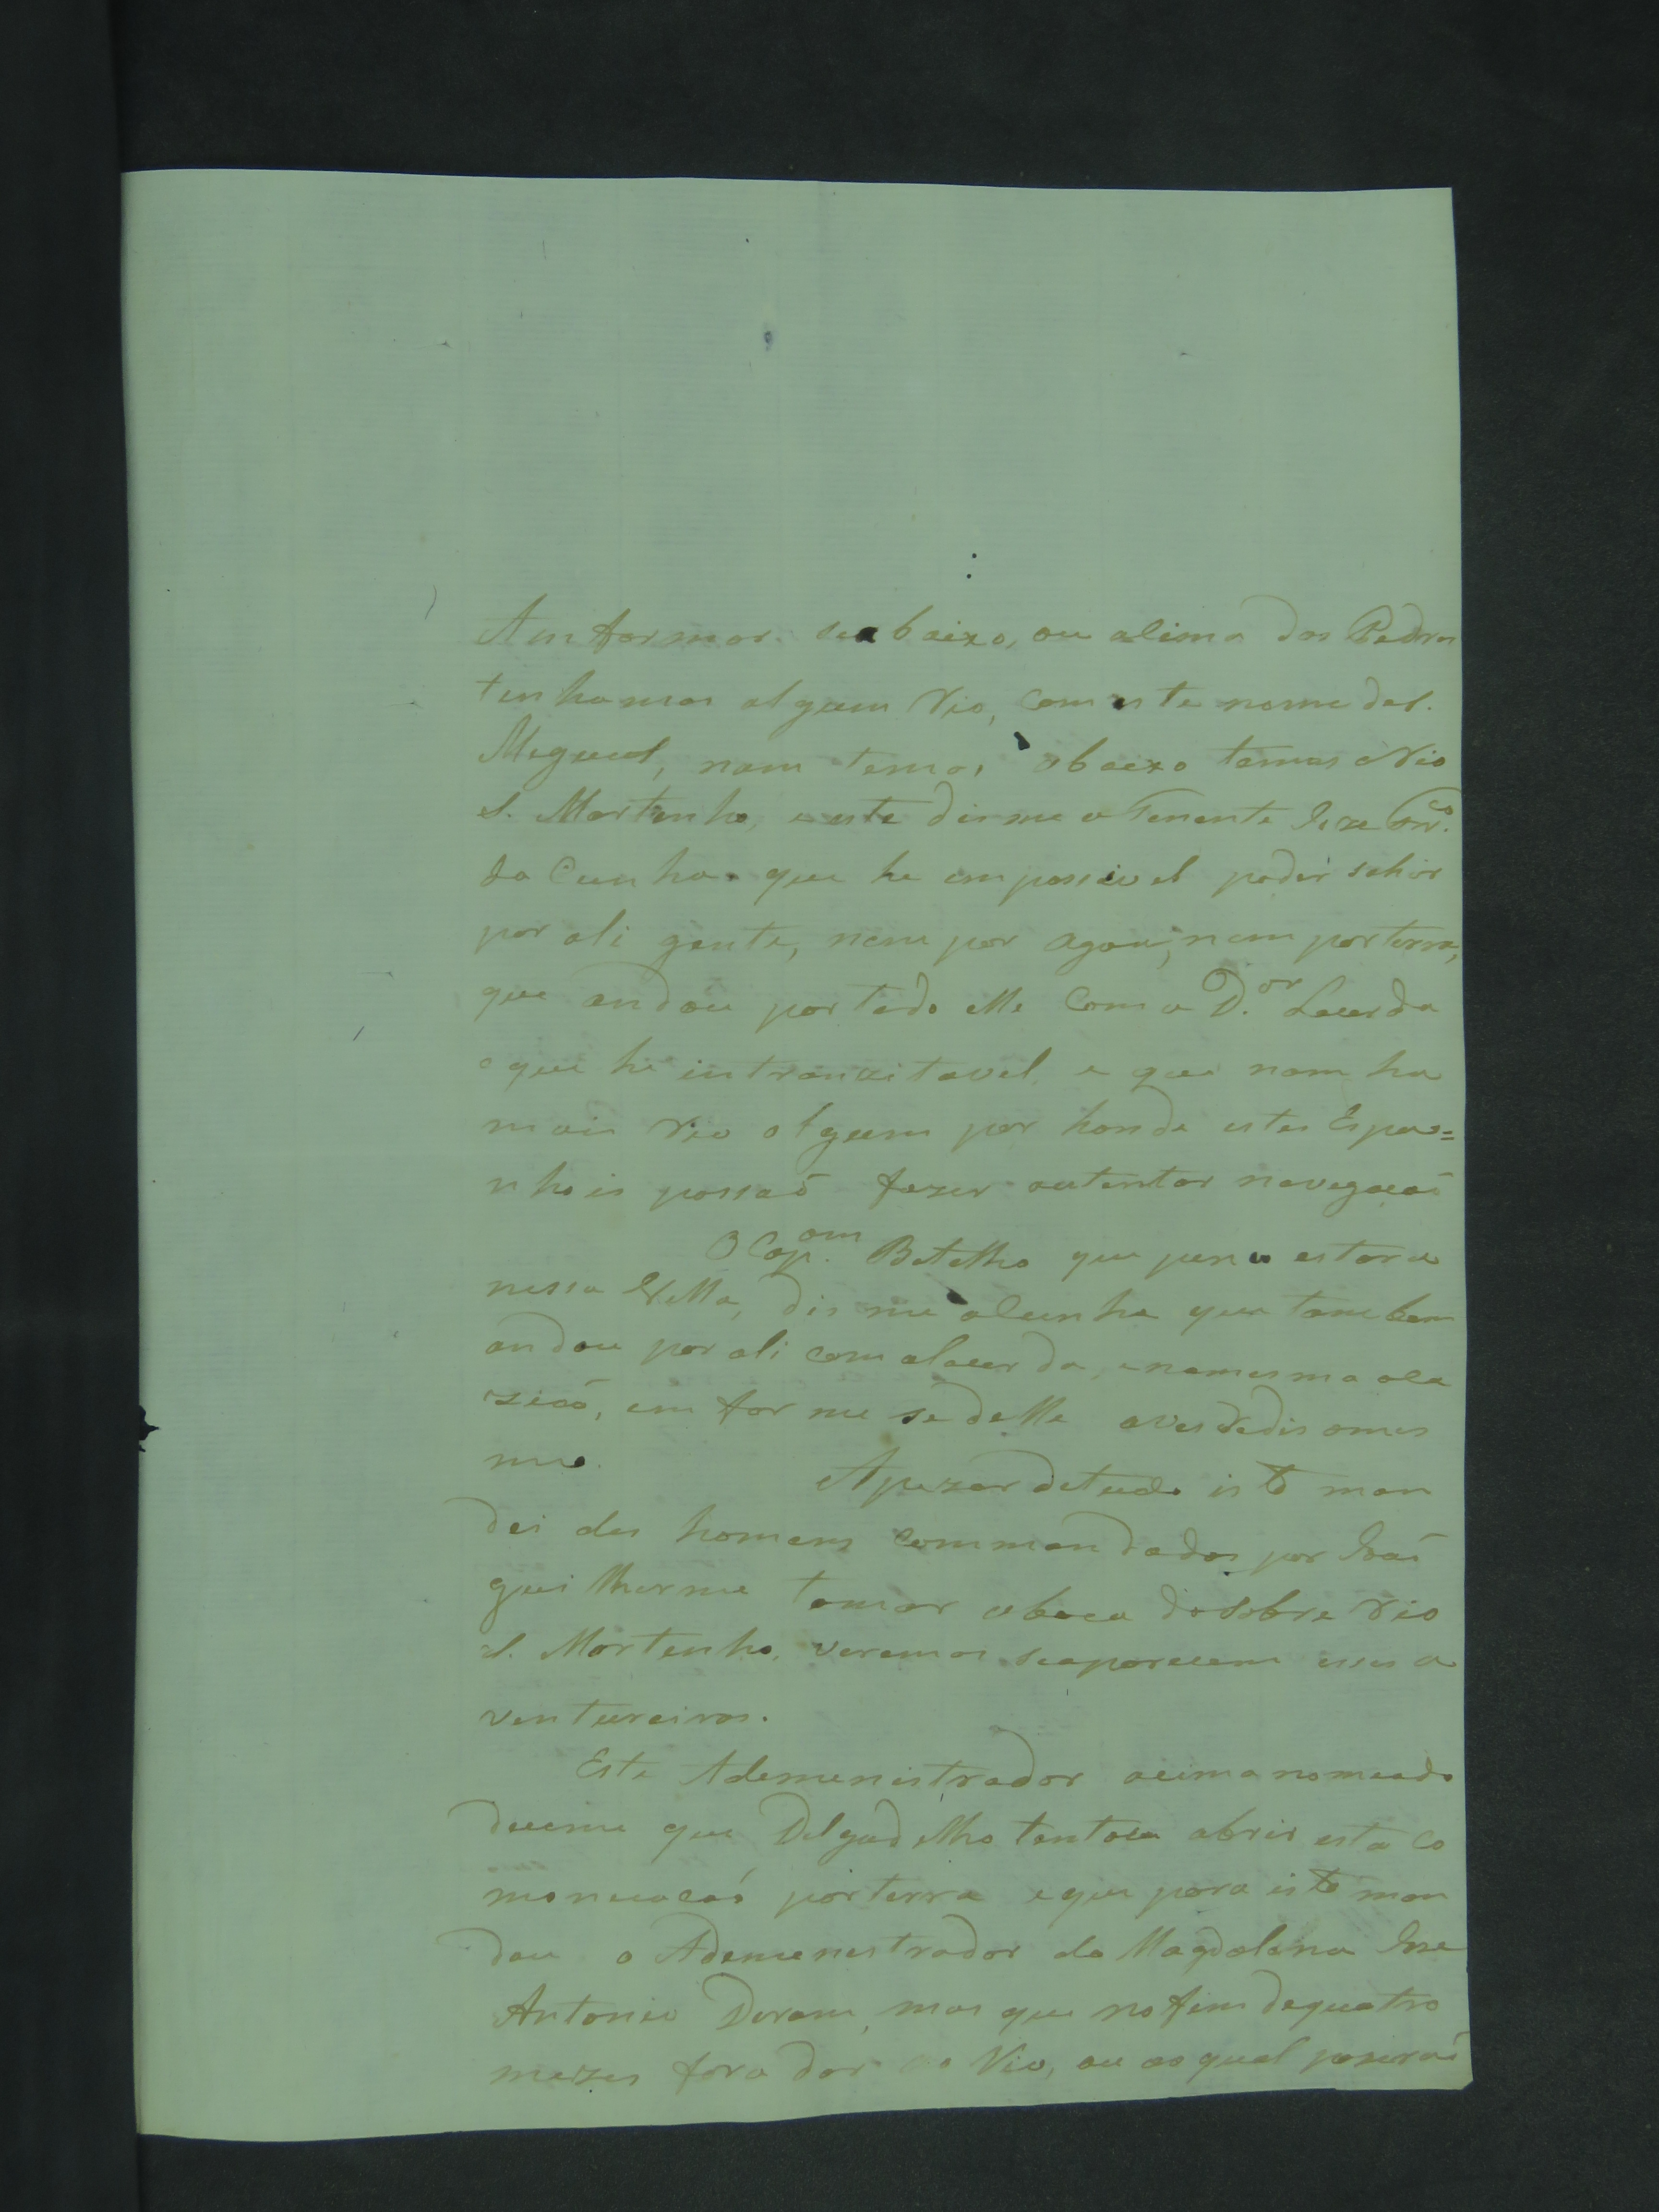 A em formar se abaixo, ou asima das Pedras
tenhamos algum Rio, com este nome de S.
Meguel, nam temos abaixo temos o Rio
S. Martenho, e este dis me o Tenente Joze
da Cunha que he empossivel poder sahir
por ali gente, nem por agoa, nem por terra,
que andou por todo elle com o D.or Lacerda
e que he intranzitavel e que nam ha
mais Rio algum por honde estes Espa=
nhois possaõ fazer ou tentar navegacaõ
O Cap.am Botelho que penso estara
nessa Villa, dis me o Cunha que tambem
andou por ali com o Lacerda, e na mesma oca
ziaõ, em forme se delle a ver se dis o mes
mo.
Apezar de tudo isto man
dei des homens commandados por Joaõ
guilherme tomar a boca do sobre Rio
S. Martenho, veremos se aparecem esses a
ventureiros.
Este Ademenistrador acima nomeado
deceme que Delgadelho tentou abrir esta co
monicacaõ por terra e que para isto man
dou o Ademenestrador da Magdalena Joze
Antonio Duram, mas que no fim de quatro
mezes fora dar no Rio, ou ao qual pozeraõ